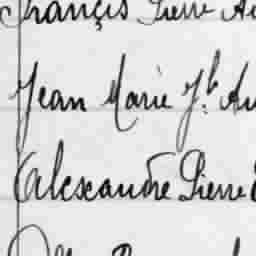 François Pierre Au
Jean Marie Jh. Au
Alexandre Pierre